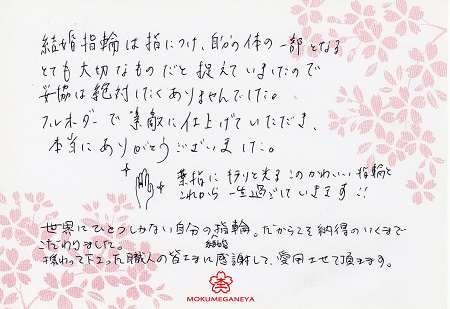 結婚指輪は指につけ、自分の体の一部となる
とても大切なものだと捉えていましたので
妥協は絶対したくありませんでした。
フルオーダーで素敵に仕上げていただき、
本当にありがとうございました。
薬指にキラリと光るこのかわいい指輪と
これから一生過ごしていきます!!
世界にひとつしかない自分の指輪。だからこそ納得のいくまで
こだわりました。
結婚
携わって下さった職人の皆さまに感謝して、愛用させて頂きます。
MOKUMEGANEYA